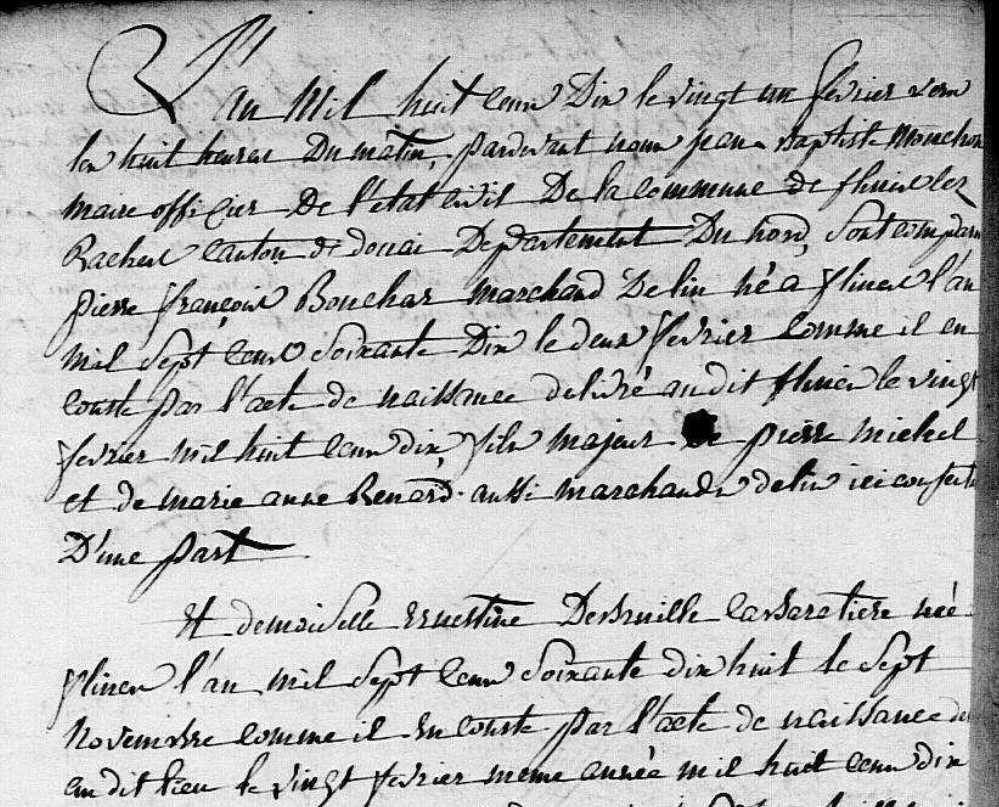 L'an mil huit cens dix le vingt un février vers
les huit heures du matin, pardevant nous jean Baptiste Mouchon
maire officier de l'état civil de la commune de flines lez
Raches canton de douai Departement du nord, sont comparu
pierre françois Bouchar marchand de lin né a flines l'an
mil sept cens soixante dix le deux février comme il en
conste par l'acte de naissance delivré au dit flines le vingt
fevrier mil huit cens dix, fils majeur de pierre michel
et de marie anne Renard aussi marchands de lin ici
D'une part
Et demoiselle Ernestine cabaretiere née
flines l'an mil sept cens soixante dix huit le sept
Novembre comme il en conste par l'acte de naissance
au dit lieu le vingt fevrier meme année mil huit cens dix